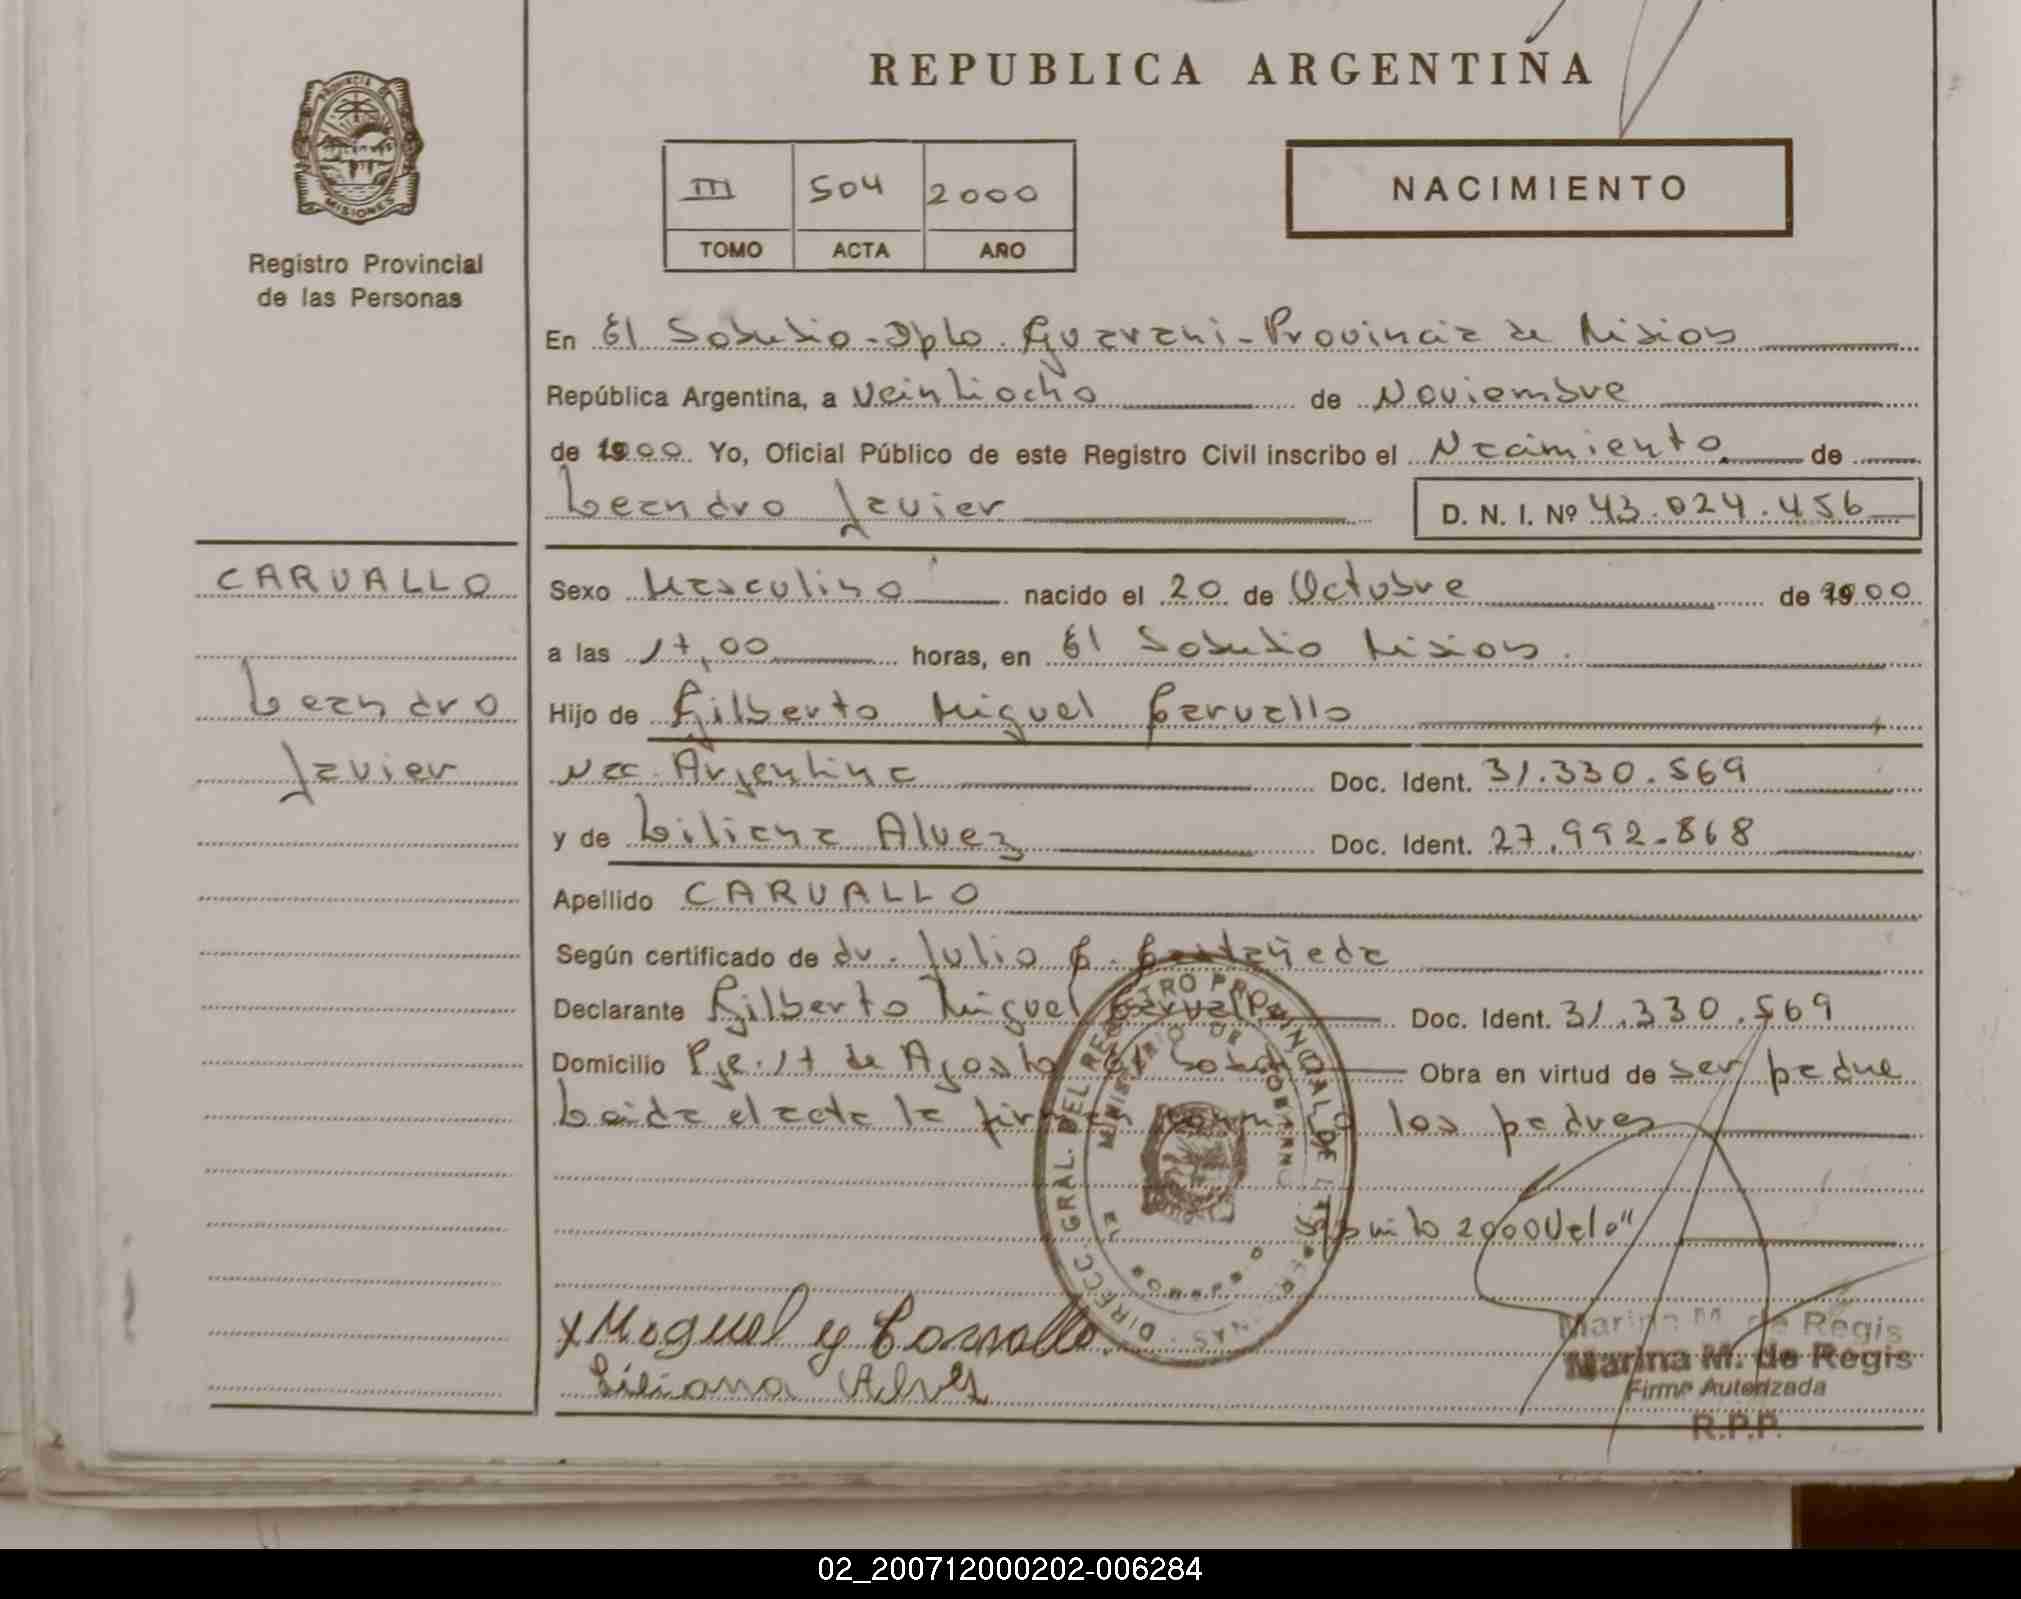 REPUBLICA ARGENTINA
PROVINCIA DE
MISIONES
Registro Provincial
de las Personas
III 504 2000
TOMO ACTA AÑO
NACIMIENTO
En El Soberbio - Dpto. Guarani - Provincia de Misiones
República Argentina, a Veintiocho de Noviembre
de 1900 Yo, Oficial Público de este Registro Civil inscribo el Nacimiento de
Leandro Javier D. N. I. Nº 43.024.456
CARVALLO
Leandro
Javier
Sexo Masculino nacido el 20 de Octubre de 1900
a las 17,00 horas, en El Soberbio Misiones.
Hijo de Gilberto Miguel Carvallo
Nac. Argentina Doc. Ident. 31.330.569
y de Liliana Alvez Doc. Ident. 27.992.868
Apellido CARVALLO
Según certificado de dr. Julio C. Castañeda
Declarante Gilberto Miguel Carvallo Doc. Ident. 31.330.569
Domicilio Pje. 17 de Agosto El Sob. Obra en virtud de ser padre
Leida el acta la firman los padres
2000 Vale"
DIRECC. GRAL. DEL REGISTRO PROVINCIAL DE LAS PERSONAS
MINISTERIO DE GOBIERNO
EL SOBERBIO
x Miguel y Carvallo
Liliana Alvez
Marina M. de Regis
Marina M. de Regis
Firma Autorizada
R.P.P.
02_200712000202-006284